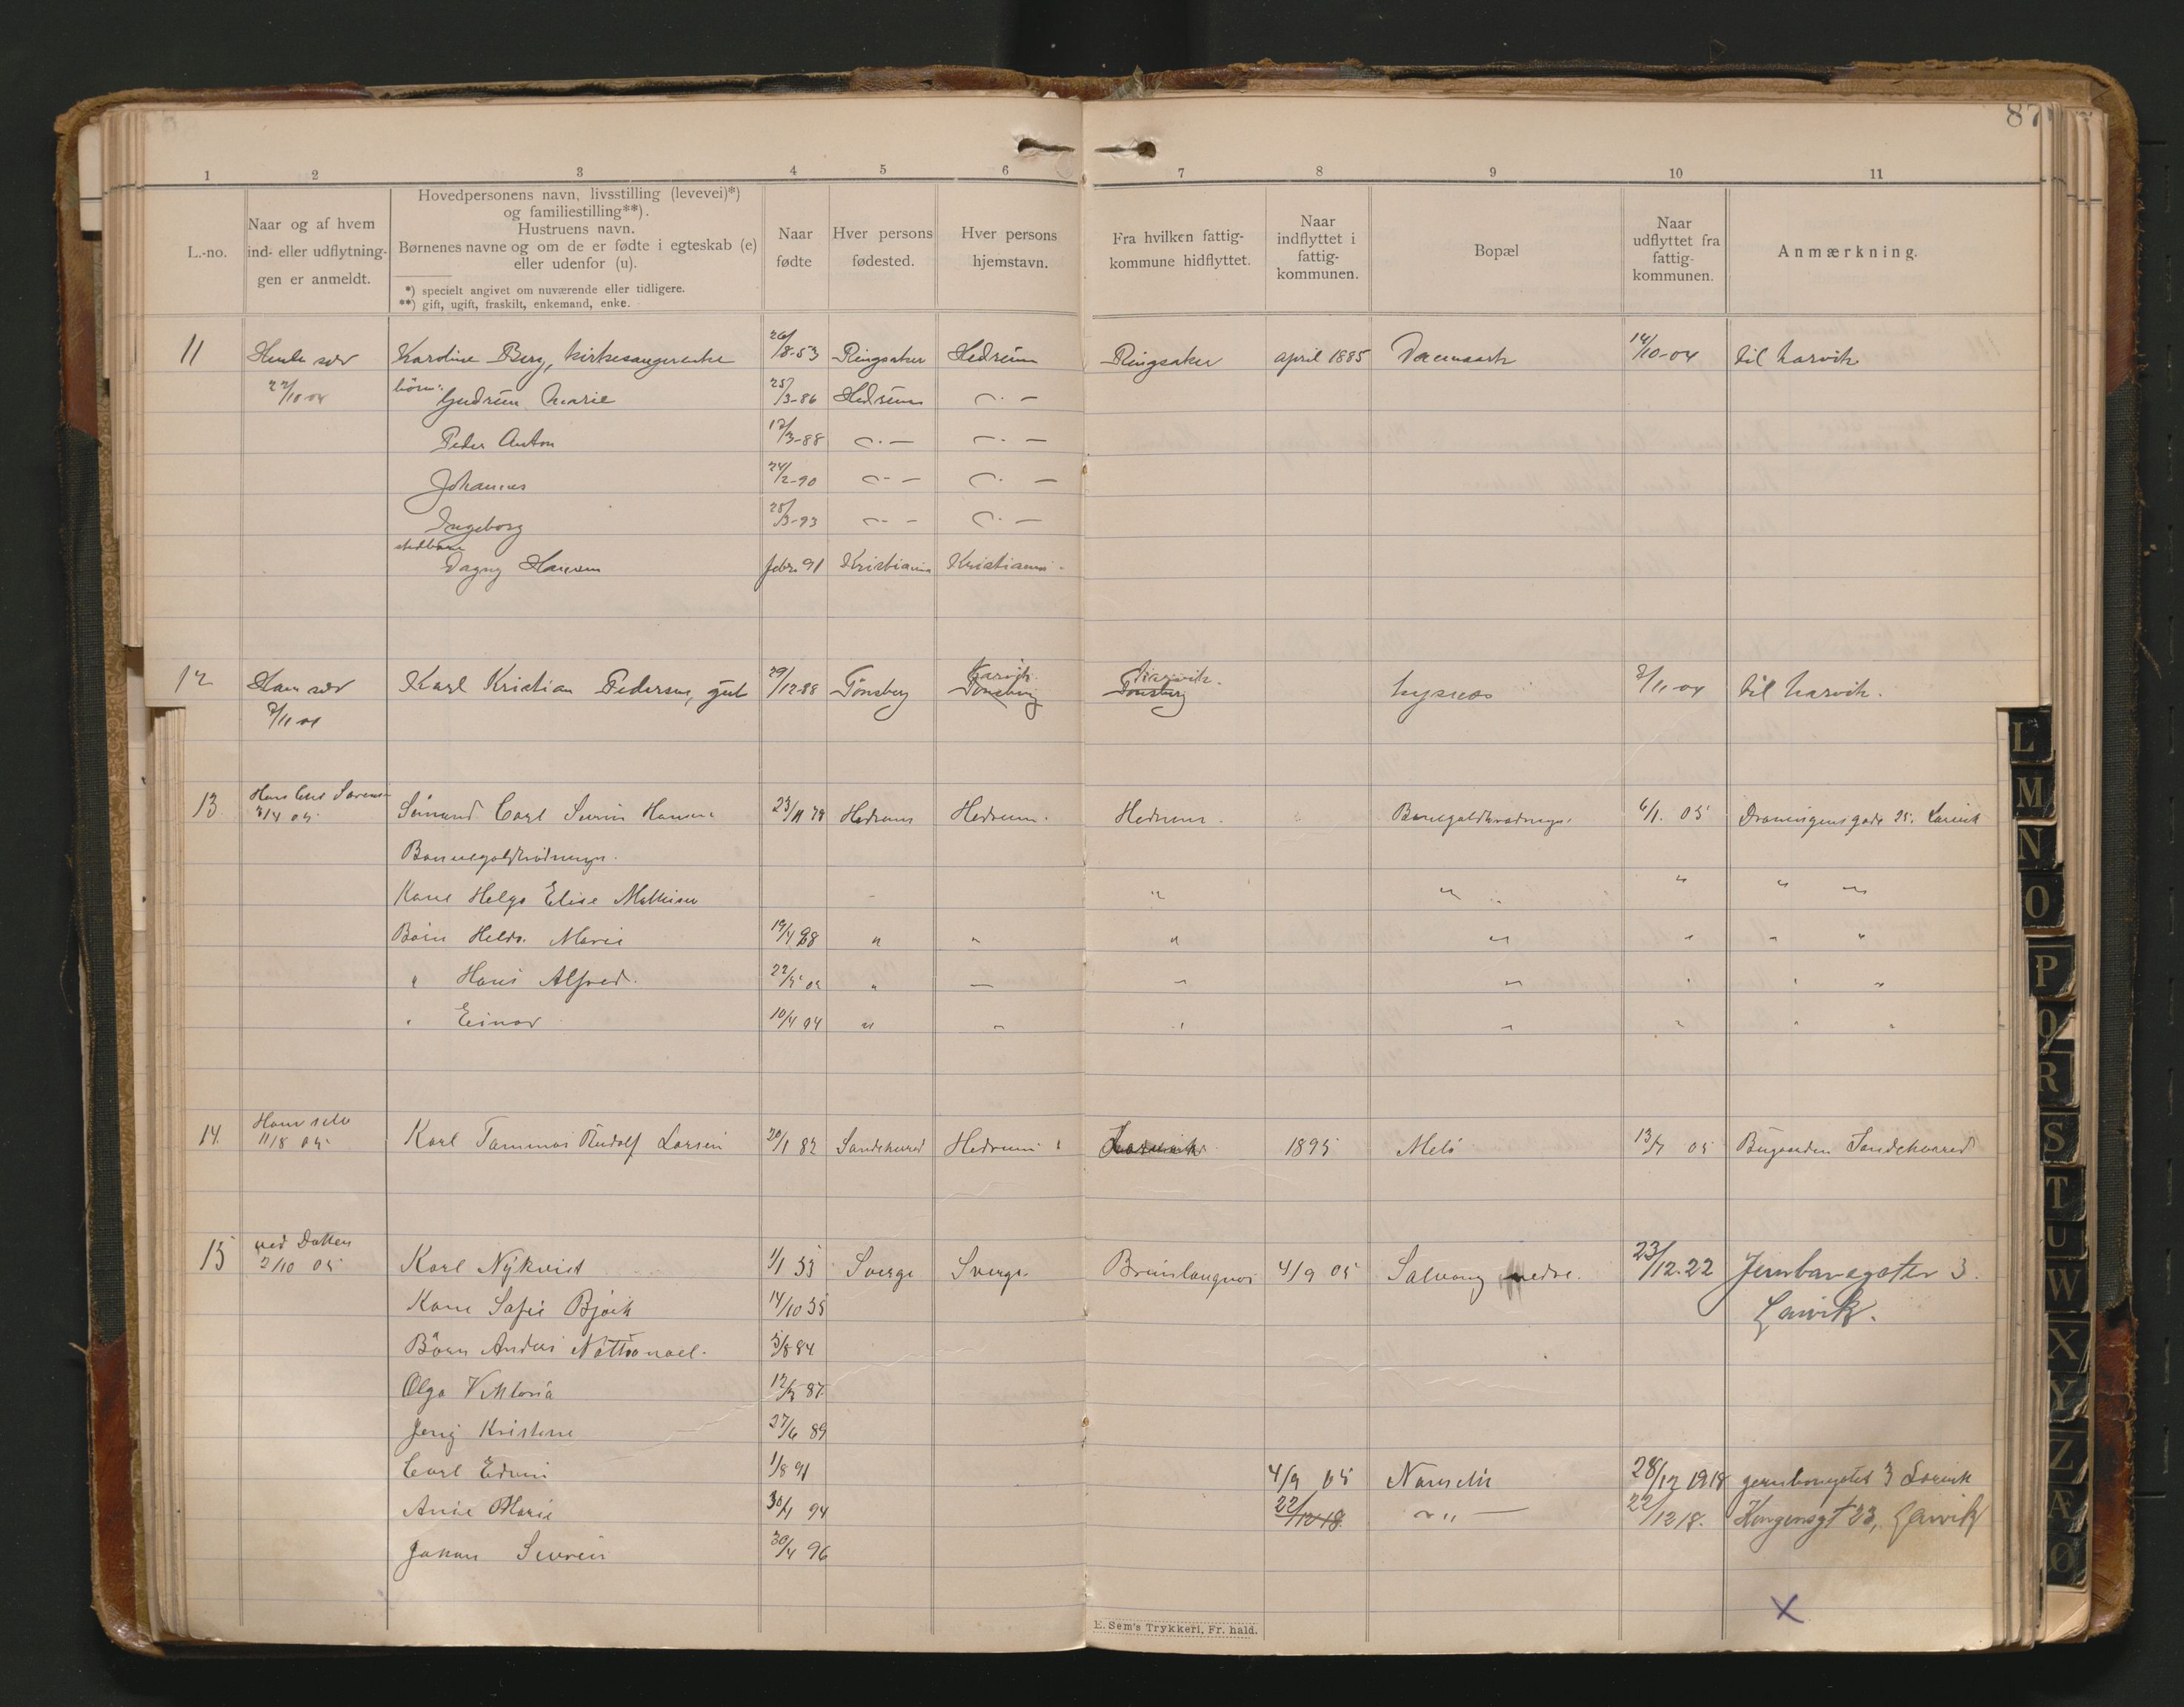 87
1 2 3 4 5 6 7 8 9 10 11
L.-no.
Naar og af hvem
ind- eller udflytnin-
gen er anmeldt.
Hovedpersonens navn, livsstilling (levevei)*)
og familiestilling**).
Hustruens navn.
Børnenes navne og om de er fødte i egteskab (e)
eller udenfor (u).
*) specielt angivet om nuværende eller tidligere.
**) gift, ugift, fraskilt, enkemand, enke.
Naar
fødte
Hver persons
fødested.
Hver persons
hjemstavn.
Fra hvilken fattig-
kommune hidflyttet.
Naar
indflyttet i
fattig-
kommunen.
Bopæl
Naar
udflyttet fra
fattig-
kommunen.
Anmærkning.
11 Karoline Berg, kirkesangerenke 26/8-53 Ringsaker Hedrum Ringsaker april 1885 14/10-04 til Larvik
22/10 04 börn: Gudrun Marie 25/3-86 Hedrum — " —
Peder Anton 17/3-88 — " — — " —
Johannes 24/2-90 — " — — " —
Ingeborg 28/3-93 — " — — " —
stedbarn
Dagny Hansen febr. 91 Kristiania Kristiania
12 Han selv Karl Kristian Pedersen, gut 29/12-88 Tönsberg Tönsberg Larvik Tönsberg Larvik Lysnes 7/11-04 til Larvik.
7/11 04
13 3/4 05 Carl Hansen 23/11 78 Hedrum Hedrum. Hedrum. 6/1. 05 Dronningensgade 35. Larvik
Kone Helga Elise Mathisen " " " " "
Börn Marie 19/4 98 " " " " " " "
" Hans Alfred. 22/5 02 " — " " " " "
" Einar 10/4 04 " " " " " " "
14. Ham selv 11/8 05 Karl Rudolf Larsen 20/1 82 Sandeherred Hedrum 1895 Melö 13/7 05 Bugaarden Sandeherred
15 ved Datter 2/10 05 Karl Nÿkvist 1/1 55 Sverge Sverge Brunlangnæs 4/9 05 nedre. 23/12.22 Jernbanegaten 3.
Larvik.
Kone Sofie Björk 14/10 55
Börn Anders 5/8 84
Olga Viktoria 12/7 87
Jenÿ Kristine 27/6 89
Carl Edvin 1/8 91 4/9 05 28/12 1918 jernbanegatet 3 Larvik
Anne Marie 30/4 94 22/12 18. — " — 22/12 18. Kongensgt 23, Larvik
Johan Severin 30/4 96
X
E. Sem's Trykkeri, Fr. hald.
L
M
N
O
P
Q
R
S
T
U
W
X
Y
Z
Æ
Ø